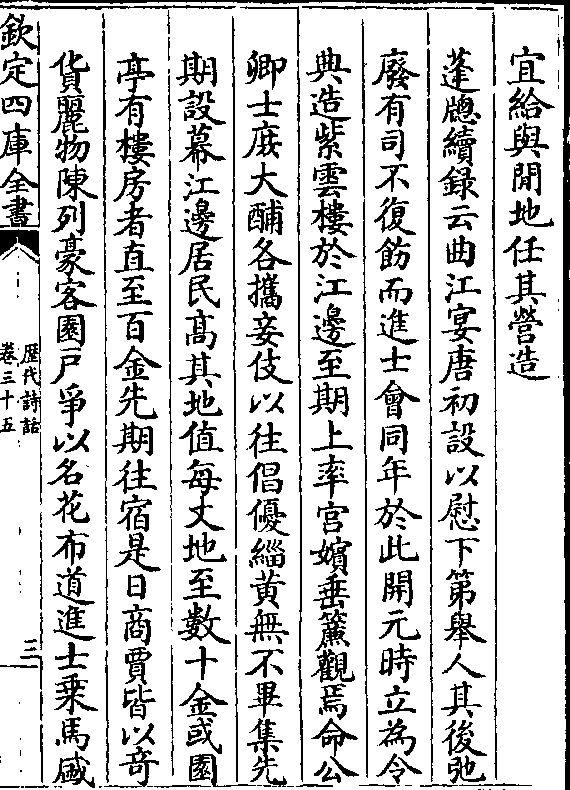 宜給與閒地任其營造
蓬牕續録云曲江宴唐初設以慰下第舉人其後弛
廢有司不復飭而進士會同年於此開元時立為令
典造紫雲樓於江邊至期上率宮嬪垂簾觀焉命公
卿士庶大酺各攜妾伎以往倡優緇黄無不畢集先
期設幕江邊居民髙其地值每丈地至數十金或園
亭有樓房者直至百金先期往宿是日商賈皆以奇
貨麗物陳列豪客園戸爭以名花布道進士乗馬盛
欽定四庫全書
歴代詩話
卷三十五
三